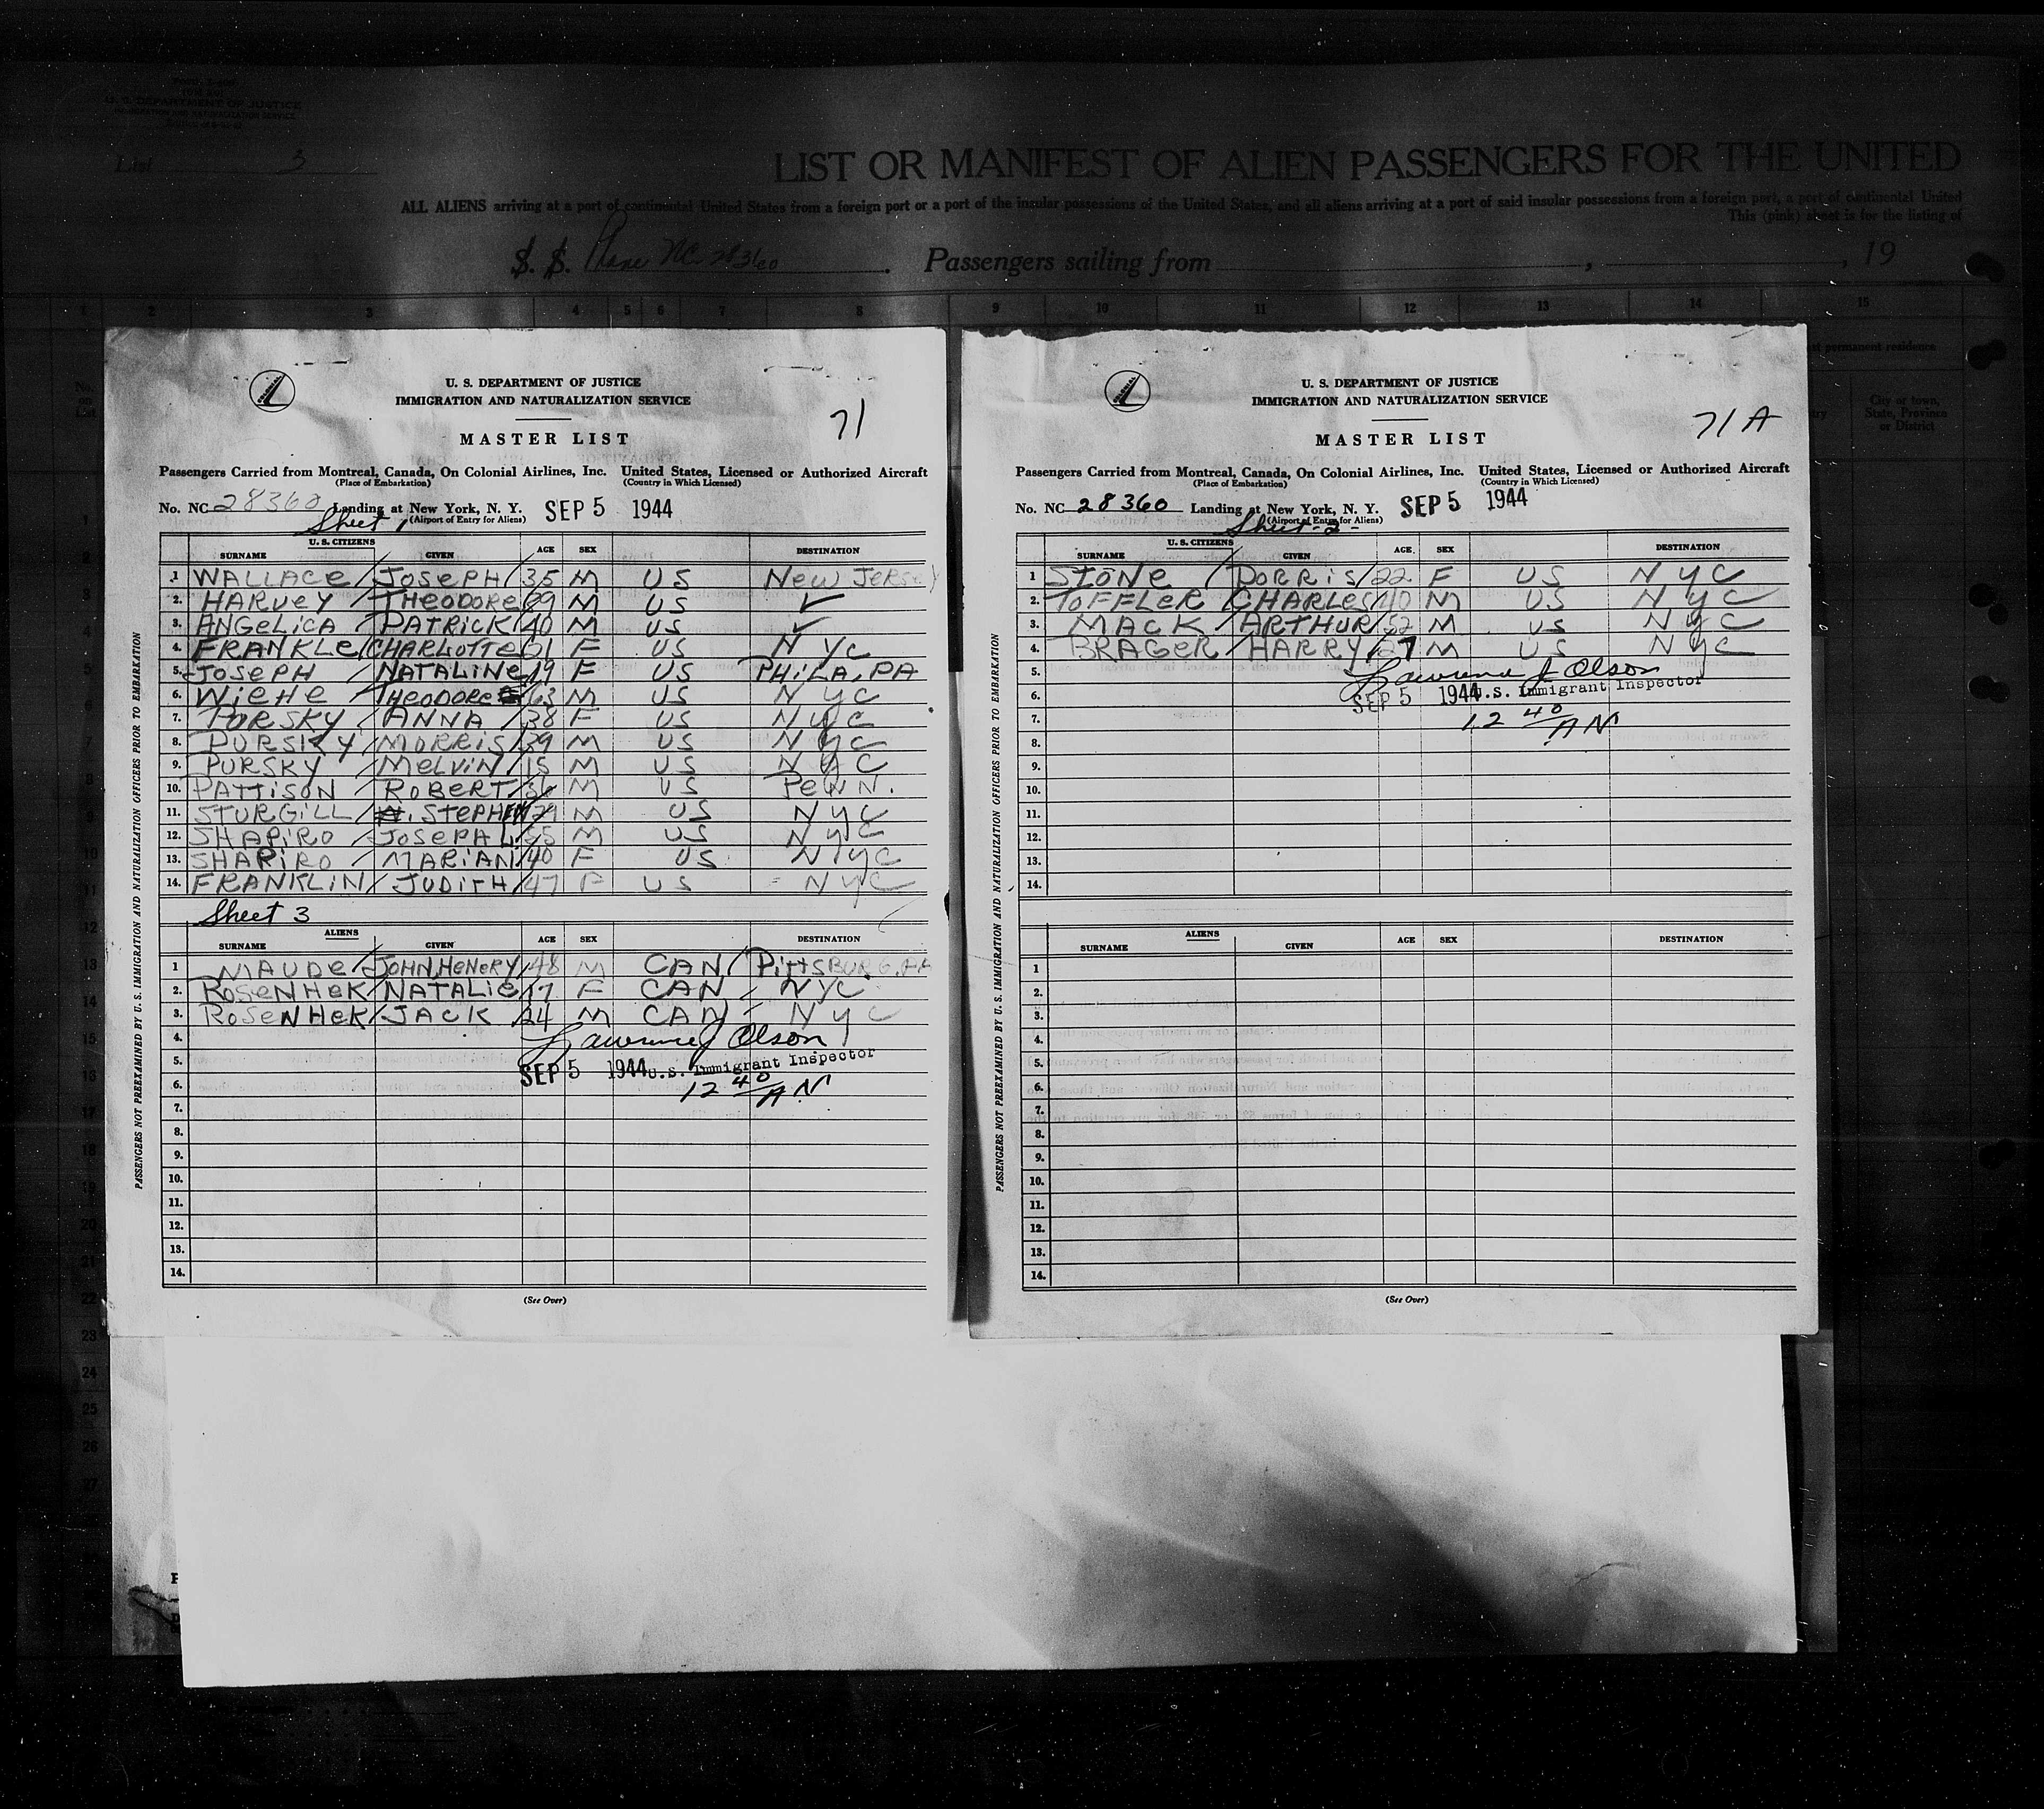 U. S. DEPARTMENT OF JUSTICE
List 3
LIST OR MANIFEST OF ALIEN PASSENGERS FOR THE UNITED
ALL ALIENS arriving at a port of continental United States from a foreign port or a port of the insular possessions of the United States, and all aliens arriving at a port of said insular possessions from a foreign port, a port of continental United
This (pink) sheet is for the listing of
S. S. Plane NC 28360 . Passengers sailing from , , 19
1 2 3 4 5 6 7 8 9 10 11 12 13 14 15
permanent residence
No. on List
City or town, State, Province or District
COLONIAL
U. S. DEPARTMENT OF JUSTICE
IMMIGRATION AND NATURALIZATION SERVICE
71
MASTER LIST
Passengers Carried from Montreal, Canada, On Colonial Airlines, Inc. United States, Licensed or Authorized Aircraft
(Place of Embarkation) (Country in Which Licensed)
No. NC 28360 Landing at New York, N. Y. SEP 5 1944
Sheet 1 (Airport of Entry for Aliens)
U. S. CITIZENS
SURNAME GIVEN AGE SEX DESTINATION
1 WALLACE / JOSEPH / 35 M US NEW JERSEY
2. HARVEY / THEODORE 39 M US ✓
3. ANGELICA / PATRICK / 40 M US ✓
4. FRANKLE / CHARLOTTE 21 F US N Y C
5. JOSEPH NATALINE / 19 F US PHILA, PA
6. WIEHE / THEODORE 63 M US N Y C
7. PORSKY / ANNA / 38 F US N Y C
8. PURSKY / MORRIS / 39 M US N Y C
9. PURSKY / MELVIN / 15 M US N Y C
10. PATTISON / ROBERT / 36 M US PENN.
11. STURGILL . STEPHEN / 29 M US N Y C
12. SHAPIRO / JOSEPH L. M US N Y C
13. SHAPIRO / MARIAN / 40 F US N Y C
14. FRANKLIN / JUDITH / 47 F US N Y C
Sheet 3
ALIENS
SURNAME GIVEN AGE SEX DESTINATION
1 MAUDE / JOHN, HENERY / 48 M CAN / PITTSBURG, PA
2. ROSENHEK / NATALIE 17 F CAN / NYC
3. ROSENHEK / JACK / 24 M CAN / N Y C
4. Lawrence J Olson
5. SEP 5 1944 U.S. Immigrant Inspector
6. 12 40/AM
7.
8.
9.
10.
11.
12.
13.
14.
(See Over)
PASSENGERS NOT PREEXAMINED BY U. S. IMMIGRATION AND NATURALIZATION OFFICERS PRIOR TO EMBARKATION
COLONIAL
U. S. DEPARTMENT OF JUSTICE
IMMIGRATION AND NATURALIZATION SERVICE
71 A
MASTER LIST
Passengers Carried from Montreal, Canada, On Colonial Airlines, Inc. United States, Licensed or Authorized Aircraft
(Place of Embarkation) (Country in Which Licensed)
No. NC 28360 Landing at New York, N. Y. SEP 5 1944
Sheet-2- (Airport of Entry for Aliens)
U. S. CITIZENS
SURNAME GIVEN AGE SEX DESTINATION
1 STONE / DORRIS / 22 F US N Y C
2. TOFFLER / CHARLES / 40 M US N Y C
3. MACK / ARTHUR / 52 M US N Y C
4. BRAGER / HARRY / 27 M US N Y C
5. Lawrence J Olson
6. SEP 5 1944 U.S. Immigrant Inspector
7. 12 40/AM
8.
9.
10.
11.
12.
13.
14.
ALIENS
SURNAME GIVEN AGE SEX DESTINATION
1
2.
3.
4.
5.
6.
7.
8.
9.
10.
11.
12.
13.
14.
(See Over)
PASSENGERS NOT PREEXAMINED BY U. S. IMMIGRATION AND NATURALIZATION OFFICERS PRIOR TO EMBARKATION